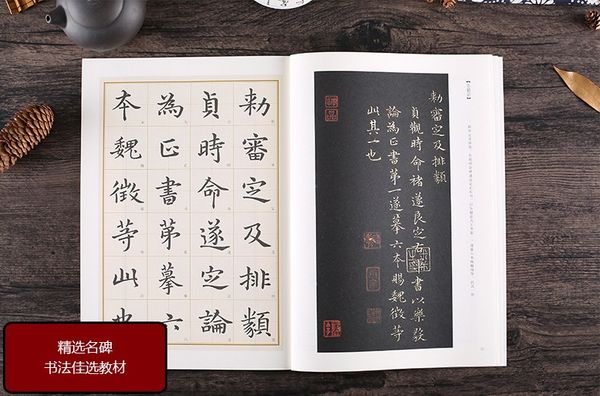 勑審定及排類
貞觀時命褚遂良定右軍書以樂毅
論為正書第一遂摹六本賜魏徵等
此其一也
勑審定及排類
貞時命遂定論
為正書第摹六
本魏徵等此也
精选名碑
书法佳选教材